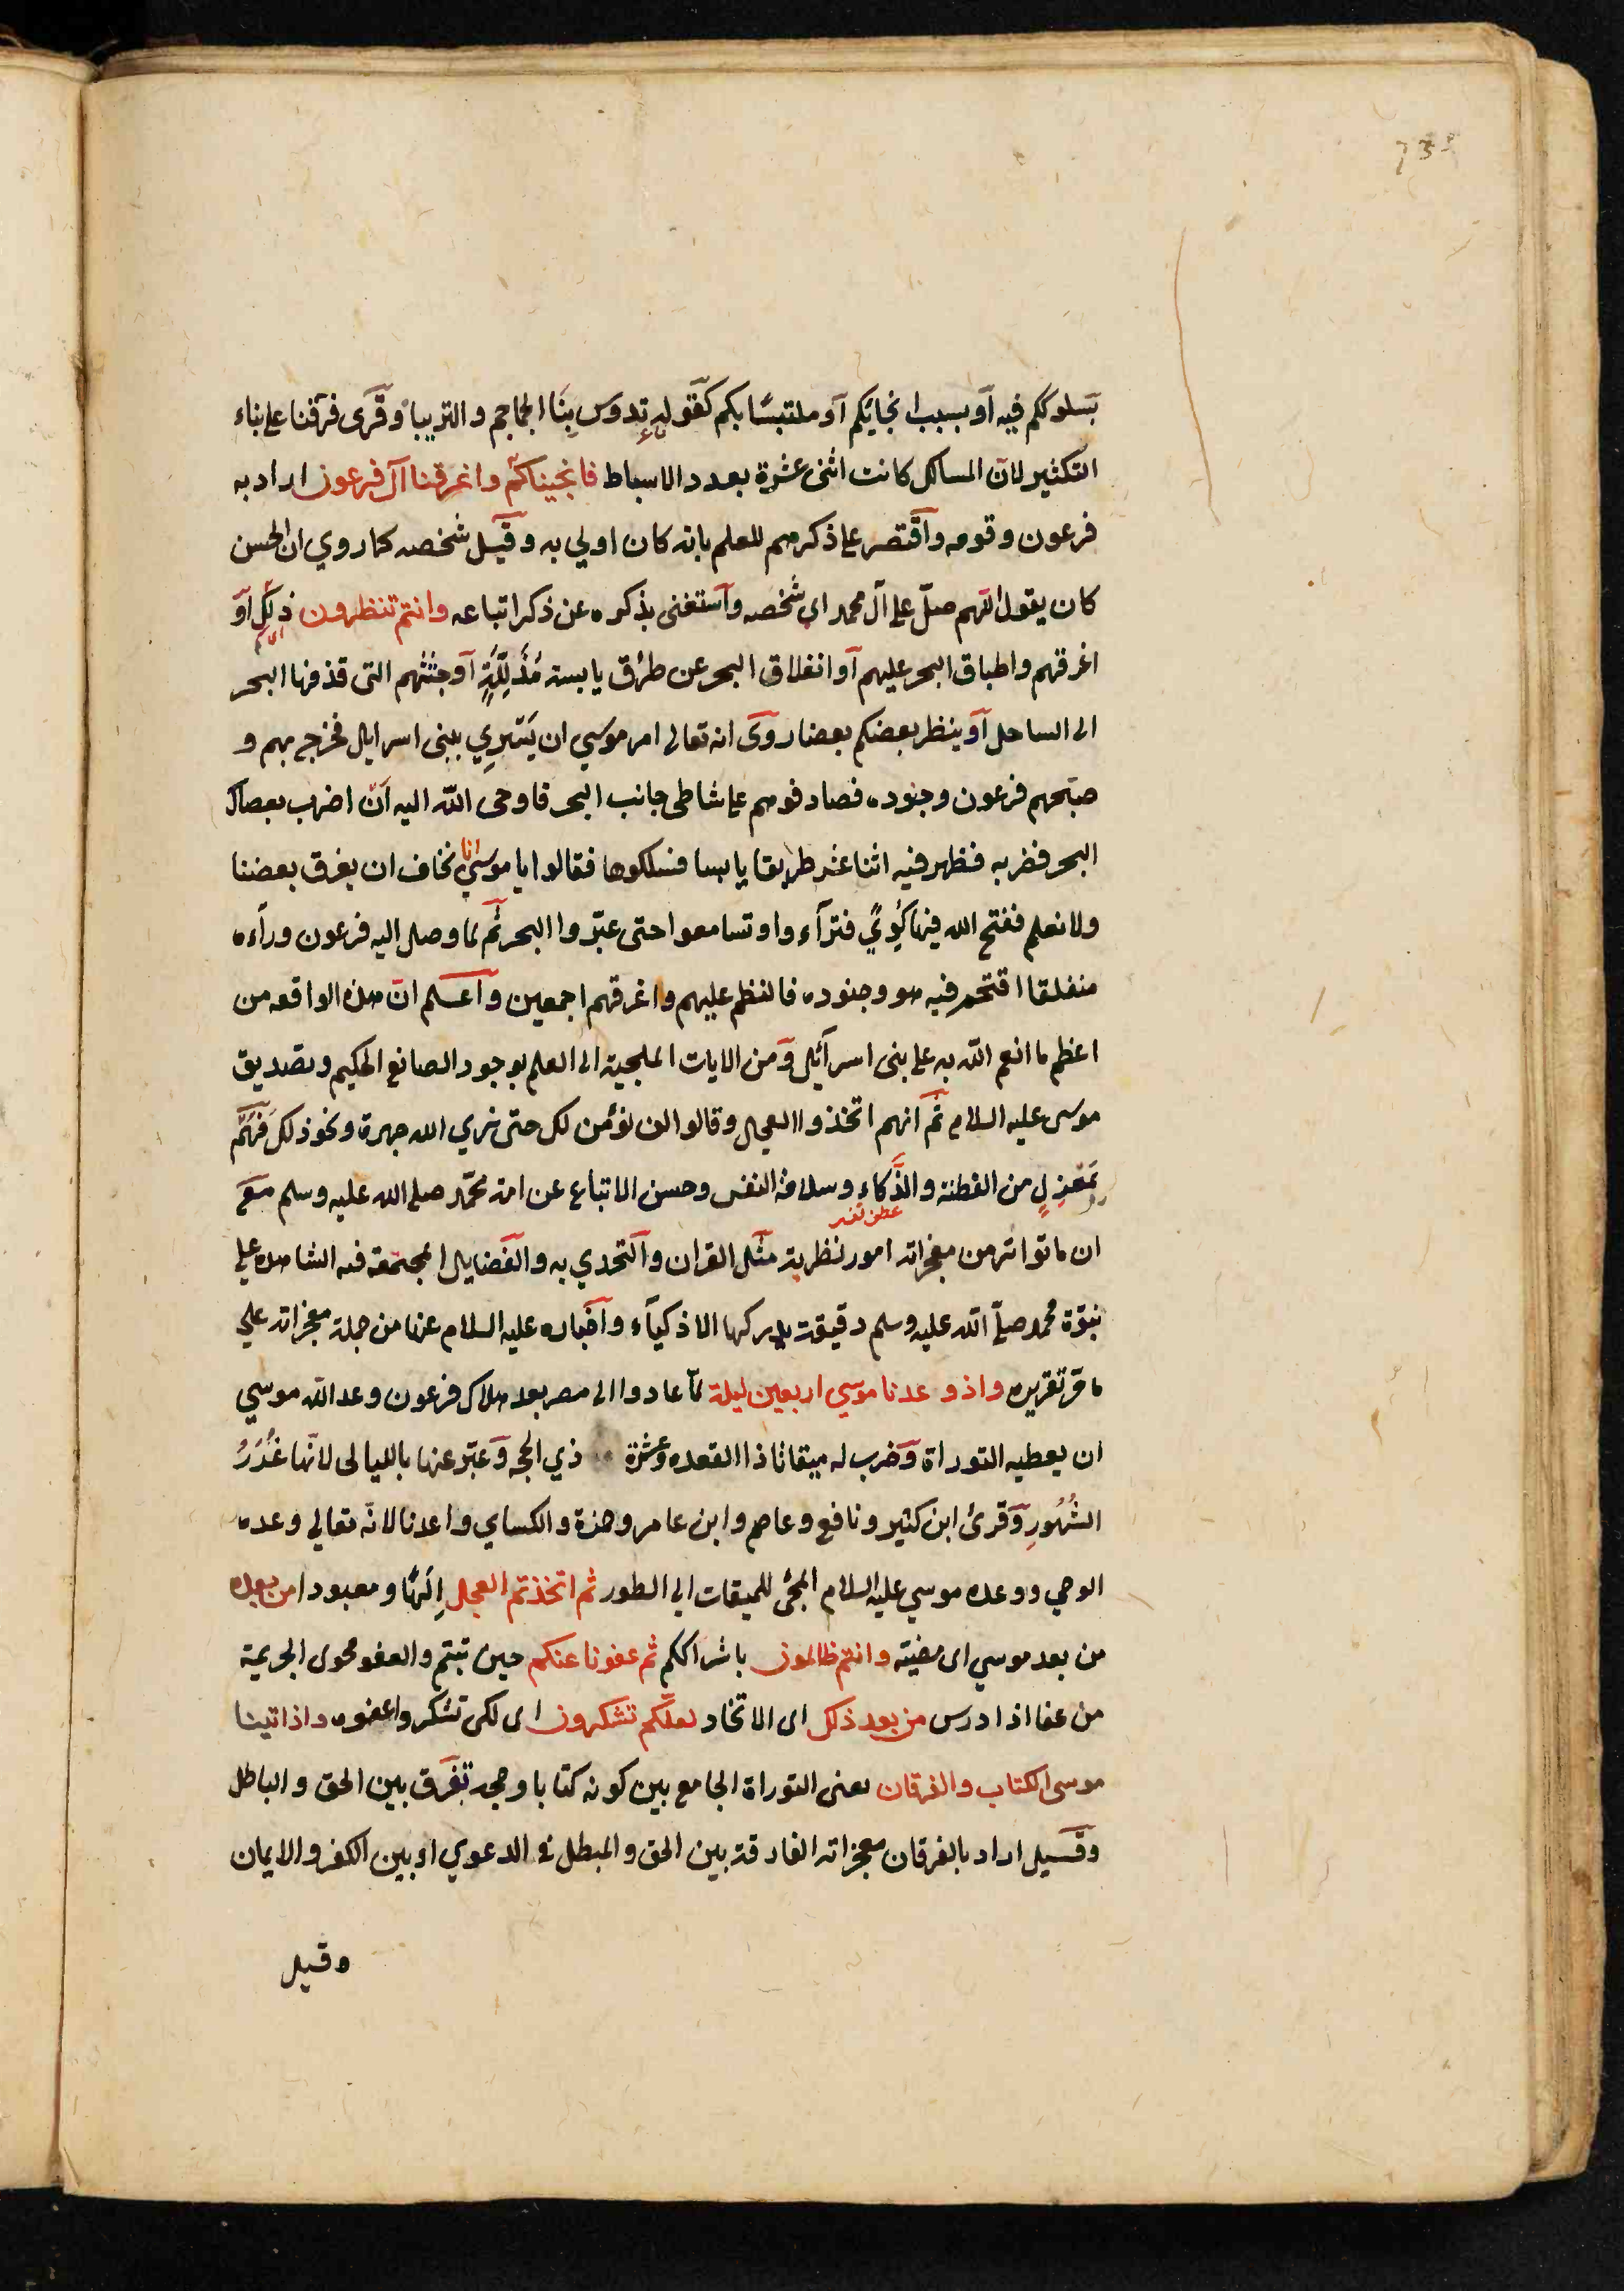 بسلوككم فيه او بسبب انجائكم او ملتبسا بكم كقوله تدوس بِنَا الجماجم والتريبا وقرى فرّقنا على بناء
التكثير لان المسالك كانت اثنى عشرة بعدد الاسباط فانجيناكم واغرقنا آل فرعون اراد به
فرعون وقومه واقتصر على ذكرهم للعلم بانه كان اولي به وقيل شخصه كما روي ان الحسن
كان يقول اللهم صلّ على آل محمد اي شخصه واستغنى بذكره عن ذكر اتباعه وانتم تنظرون ذلك او
اغرقهم واطباق البحر عليهم او انفلاق البحر عن طرق يابسة مُذَلَّلَةٍ او جثثهم التى قذفها البحر
الى الساحل او ينظر بعضكم بعضا روى انه تعالى امر موسي ان يَسْرِي ببنى اسرايل فخرج بهم و
صبّحهم فرعون وجنوده فصادفوهم على شاطى جانب البحر فاوحى الله اليه ان اضرب بعصاك
البحر فضربه فظهر فيه اثنا عشر طريقا يابسا فسلكوها فقالوا يا موسي انا نخاف ان يغرق بعضنا
ولا نعلم ففتح الله فيها كُوًي فترآءوا وتسامعوا حتى عبّروا البحر ثم لما وصل اليه فرعون ورآءه
منفلقا اقتحم فيه هو وجنوده فالتظم عليهم واغرقهم اجمعين واعلم انّ هذه الواقعه من
اعظم ما انعم الله به على بنى اسرآئيل ومن الايات الملجية الى العلم بوجود الصانع الحكيم وتصديق
موسى عليه السلام ثم انهم اتخذوا العجل وقالوا لن نؤمن لك حتى نري الله جهرة ونحو ذلك فهم
بمَعْزِلٍ من الفطنة والذَّكاء وسلامة النفس وحسن الاتباع عن امة محمّد صلى الله عليه وسلم مع
عطف تفسير
ان ما تواتر من معجزاته امور نظرية مثل القران والتحدي به والفضايل المجتمعة فيه الشاهده على
نبوّة محمد صلّى الله عليه وسلم دقيقة يدركها الاذكيآء واخباره عليه السلام عنها من جملة معجزاته علي
ما مرّ تقريره واذ وعدنا موسي اربعين ليلة لمّا عادوا الى مصر بعد هلاك فرعون وعد الله موسي
ان يعطيه التوراة وضرب له ميقاتا ذا القعده وعشرة ذي الحجه وعبّر عنها بالليالى لانّها غُرَرُ
الشُهُورِ وقرئ ابن كثير ونافع وعاصم وابن عامر وحمزة والكساي واعدنا لانّه تعالي وعده
الوحي ووعده موسي عليه السلام المجئ للميقات الي الطور ثم اتخذتم العجل اِلَهًا ومعبودا من بعده
من بعد موسي اى مضيّه وانتم ظالمون باشراككم ثم عفونا عنكم حين تبتم والعفو محو الجريمة
من عفا اذا درس من بعد ذلك اى الاتخاد لعلّكم تشكرون اى لكى تشكروا عفوه واذ اتينا
موسى الكتاب والفرقان يعنى التوراة الجامع بين كونه كتابا وحجة تفرق بين الحق والباطل
وقيل اراد بالفرقان معجزاته الفارقة بين الحق والمبطل في الدعوي او بين الكفر والايمان
وقيل